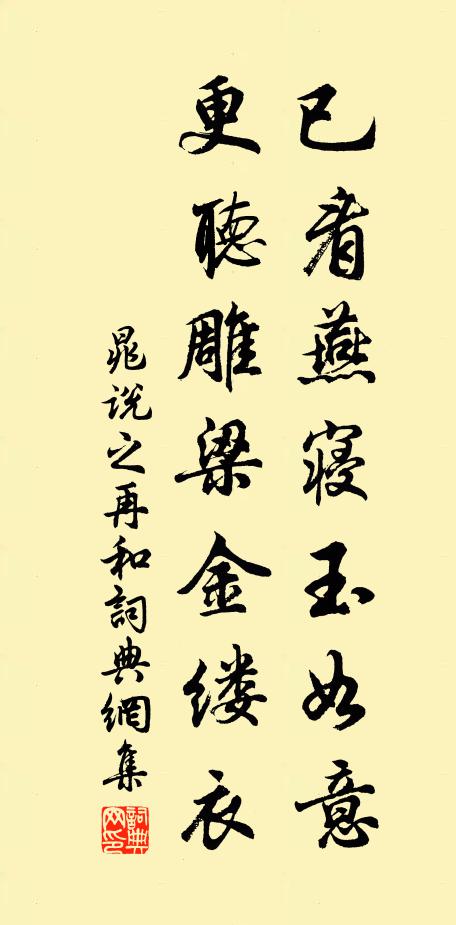 已看燕寝玉如意
更聴雕梁金缕衣
晁说之再和詞典網集
詞典网印